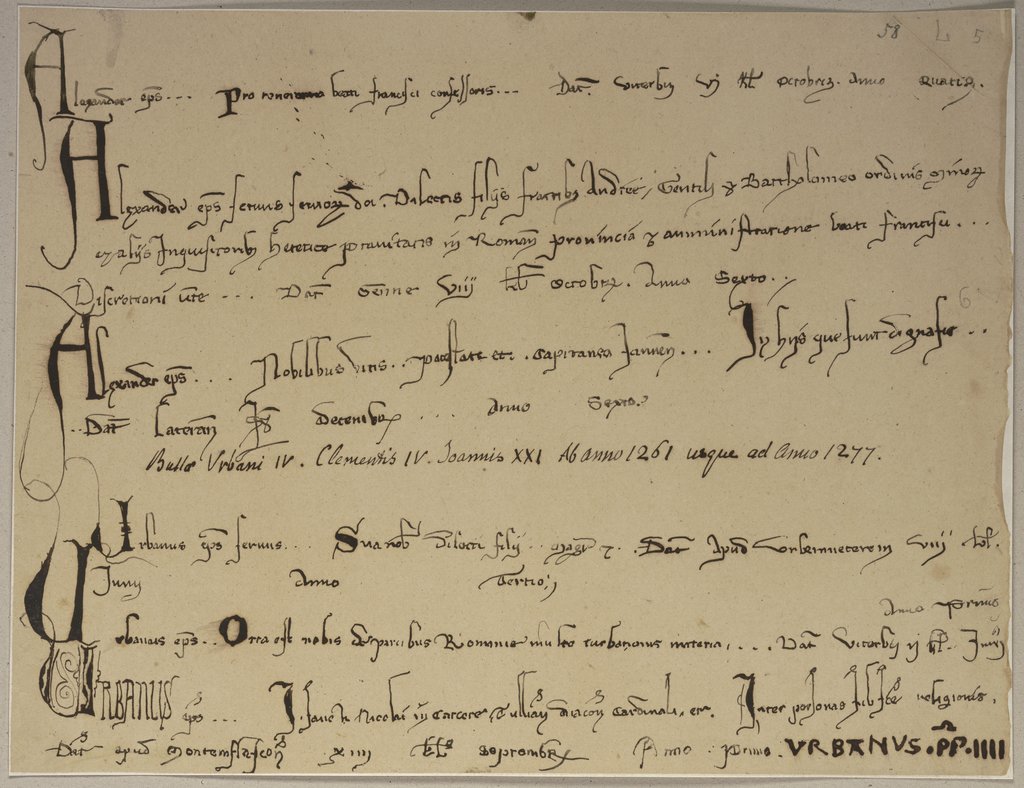 58 L 5
Alexander eps... Pro reverentia beati francisci confessoris... Dat. Viterbij Vj kl. Octobris. Anno quarto.
Alexander eps servus servorz dei. Dilectis filijs fratribz Andree, Gentili & Bartholomeo ordinis minorz
& alijs Inquisitoribz heretice pravitatis in Roman provincia & amministratione beati francisci...
Discretioni vre... Dat. Viij kl. Octobrz. Anno Sexto..
6
Alexander eps.... Nobilibus viris.. potestate et. Capitaneo Januen... In hijs que sunt
..Dat. Lateran decembrz .... Anno Sexto.
Bullæ Vrbani IV. Clementis IV. Joannis XXI Ab anno 1261 usque ad Anno 1277.
Urbanus eps servus... Sua nob dilecti filij Dat. Apud Urbemveterem Viij kl.
Junij Anno Tertio;
Anno Primo
Urbanus eps.. Orta est nobis de partibus Romanie multe turbationis materia,.... Dat. Viterbij ij kl. Junij
URBANUS eps... S. Nicolai in Carcere Tulliano diacon Cardinali, etc. Inter personas religionis,
Dat. apud Montemflascon xiiii kl. Septembrz Anno Primo. VRBANVS.PP.IIII